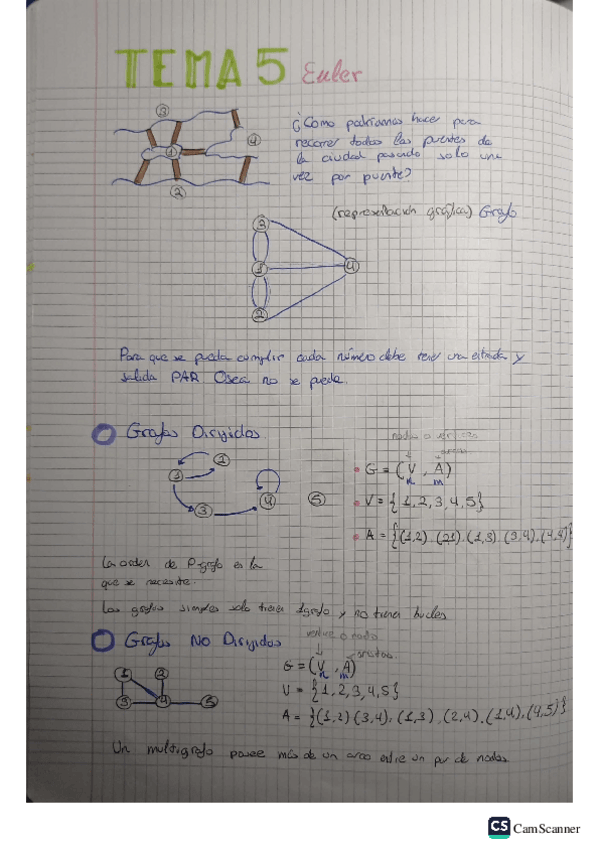 TEMA 5 Euler
¿Como podríamos hacer para
recorrer todos los puentes de
la ciudad pasando solo una
vez por puente?
3
1
4
2
(representación gráfica) Grafo
3
1
4
2
Para que se pueda cumplir cada número debe tener una entrada y
salida PAR Osea no se puede.
Grafos Dirigidos
nodo o vértice
arcos
G = (V, A)
n m
V = {1,2,3,4,5}
A = {(1,2).(21).(1,3).(3,4).(4,4)}
1
3
4
5
La orden de es la
que se necesite.
Los grafos simples solo tienen y no tienen bucles
Grafos NO Dirigidos
vertice o nodo
aristas.
G = (V, A)
n m
V = {1,2,3,4,5}
A = {(1,2)(3,4),(1,3),(2,4),(1,4),(4,5)}
1 2
3 4 5
Un multigrafo posee más de un arco entre un par de nodos
CS CamScanner